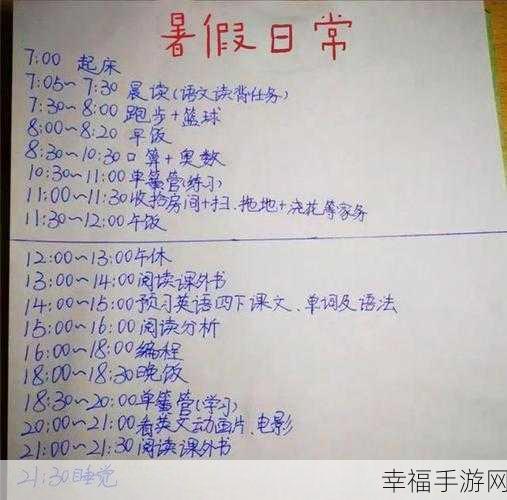 暑假日常
7:00 起床
7:05～7:30 晨读(语文读背任务)
7:30～8:00 跑步+篮球
8:00～8:20 早饭
8:30～10:30 口算+奥数
10:30～11:00 单簧管(练习)
11:00～11:30 收拾房间+扫、拖地+浇花等家务
11:30～12:00 午饭
12:00～13:00 午休
13:00～14:00 阅读课外书
14:00～15:00 预习英语四下课文、单词及语法
15:00～16:00 阅读分析
16:00～18:00 编程
18:00～18:30 晚饭
18:30～20:00 单簧管(学习)
20:00～21:00 看英文动画片、电影
21:00～21:30 阅读课外书
21:30 睡觉
幸福手游网